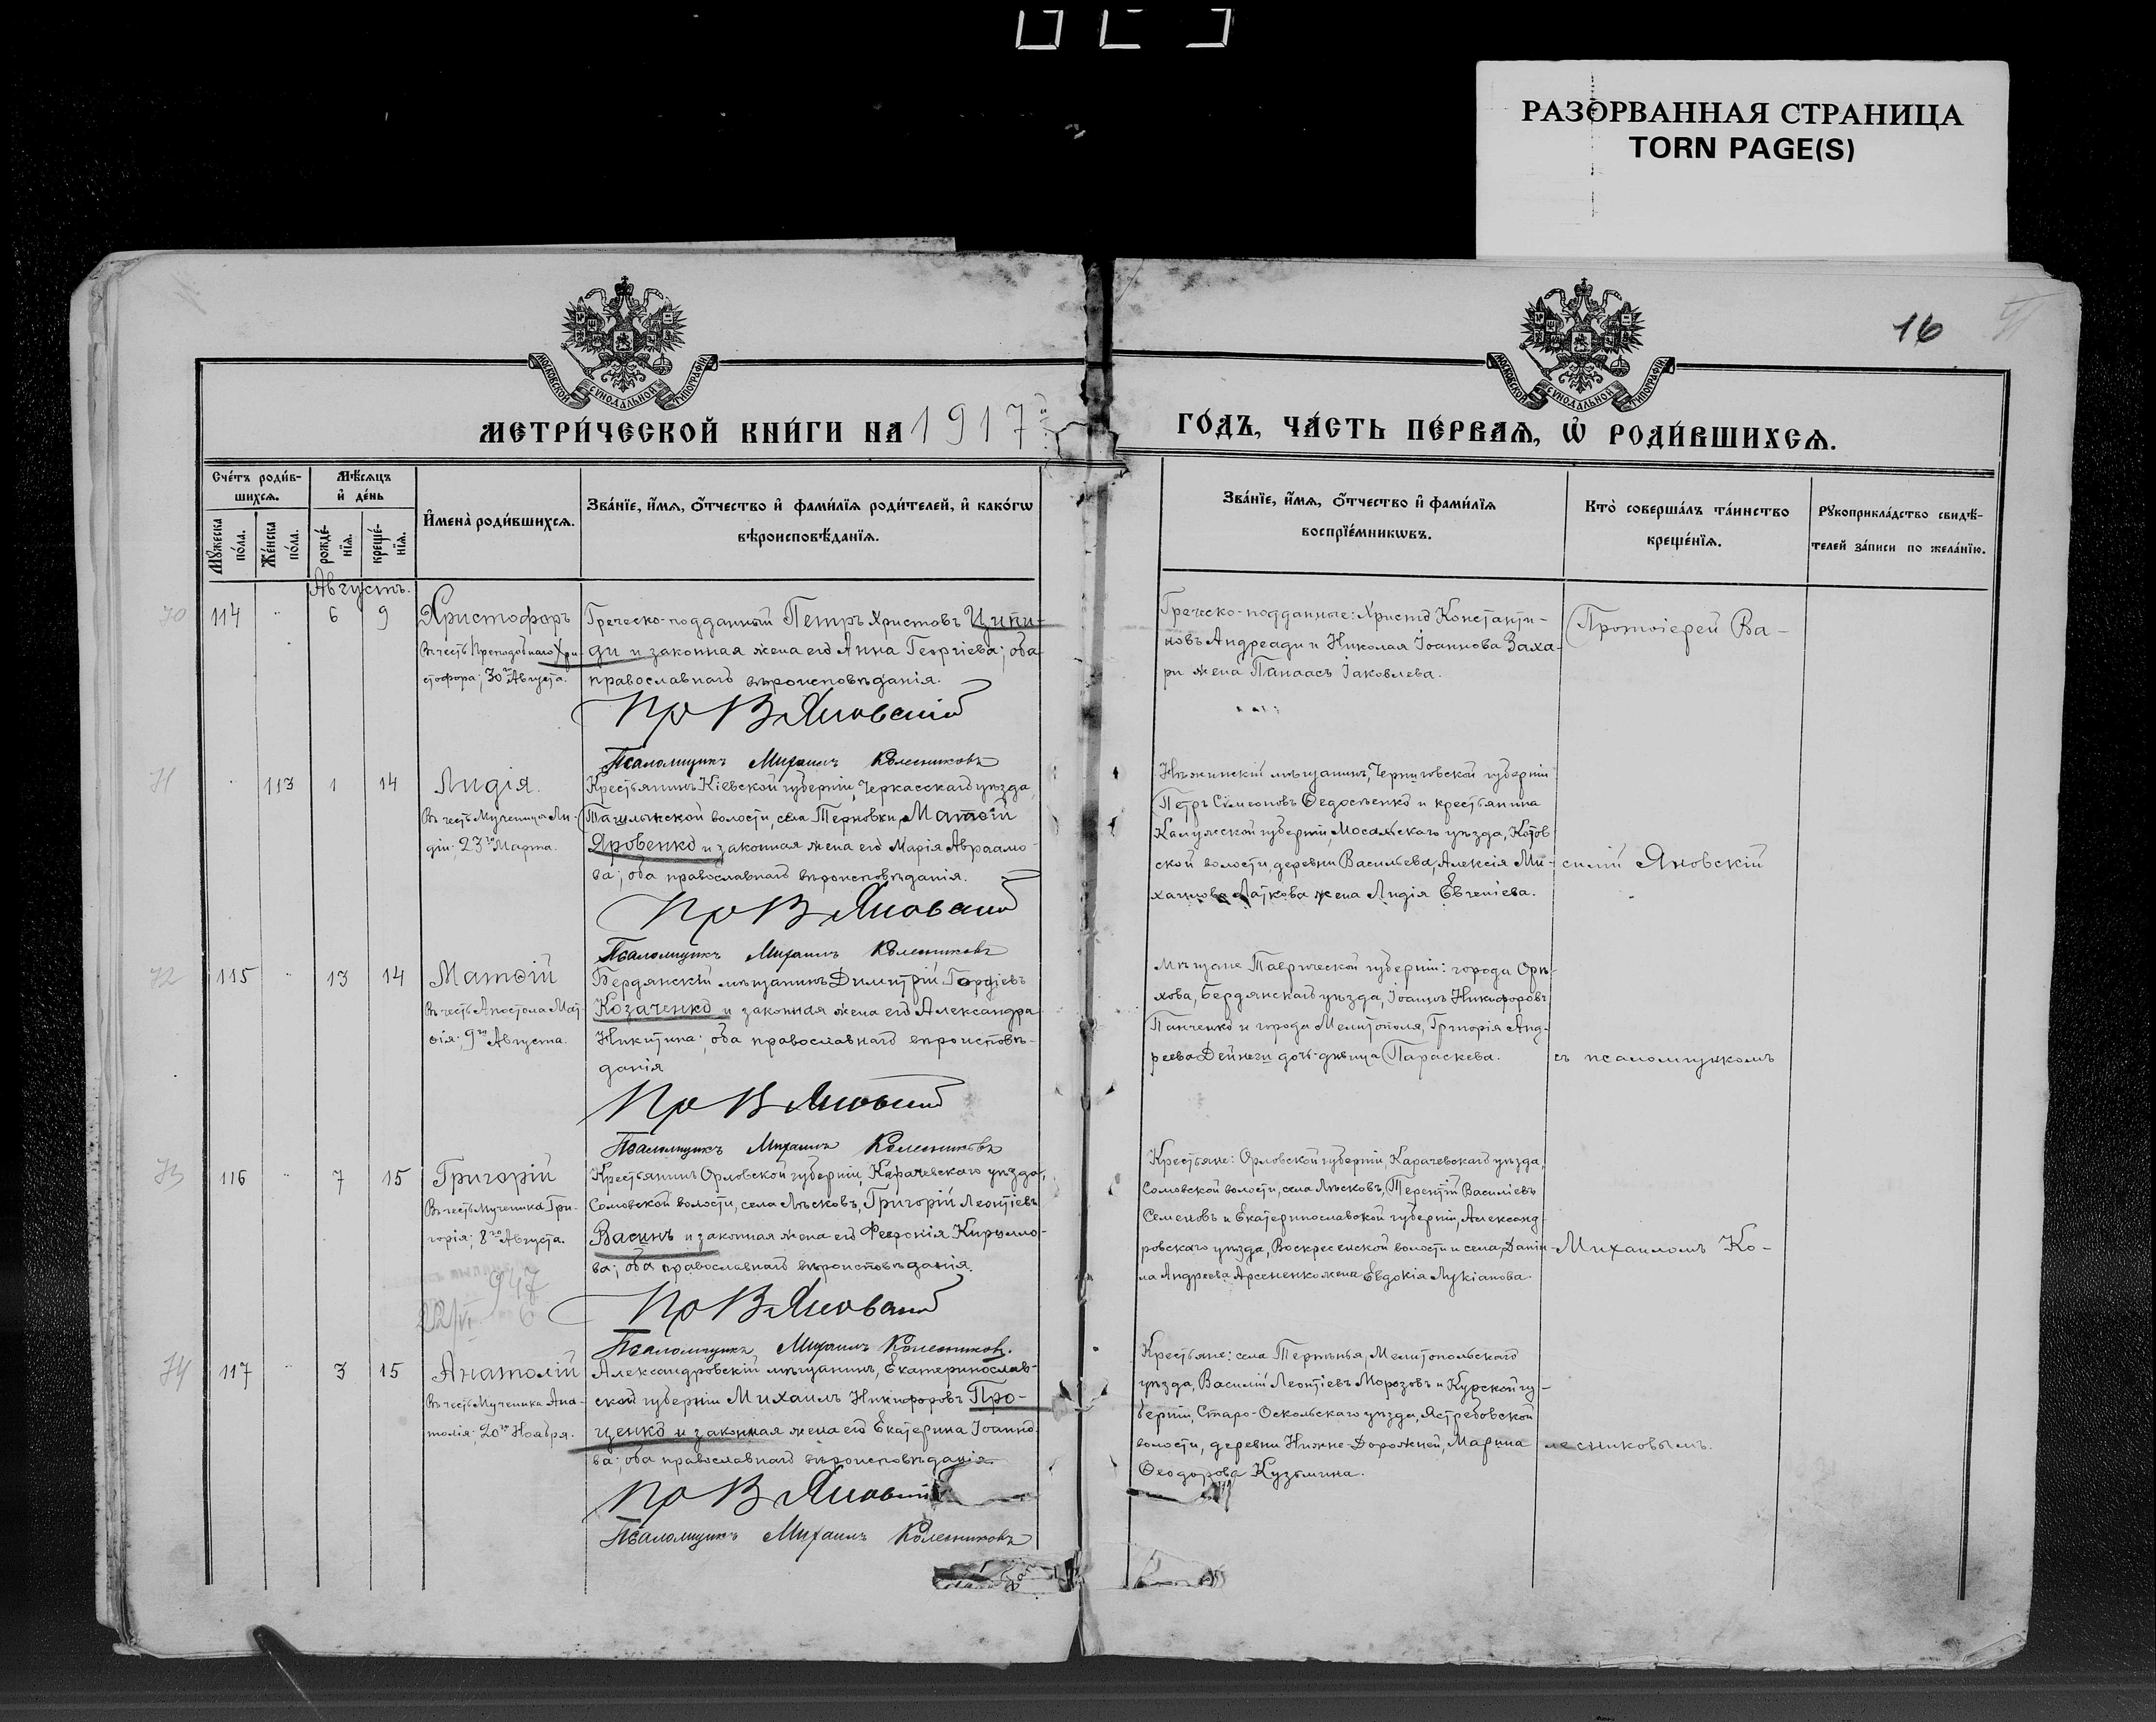 РАЗОРВАННАЯ СТРАНИЦА
TORN PAGE(S)
16
МОСКОВСКОЙ СУНОДАЛЬНОЙ ТИПОГРАФІИ
МОСКОВСКОЙ СУНОДАЛЬНОЙ ТИПОГРАФІИ
МЕТРИ́ЧЕСКОЙ КНИ́ГИ НА 1917й
ГО́ДЪ, ЧА́СТЬ ПЕ́РВАѦ, Ѽ РОДИ́ВШИХСѦ.
Сче́тъ роди́в-
шихсѧ.
Мꙋжеска по́ла.
Же́нска по́ла.
Мѣ́сѧцъ
и҆ де́нь
рожде́-
нїѧ.
креще́-
нїѧ.
И҆мена̀ роди́вшихсѧ.
Зва́нїе, и҆́мѧ, ѻ҆́тчество и҆ фами́лїѧ роди́телей, и҆ како́гѡ
вѣроисповѣ́данїѧ.
Зва́нїе, и҆́мѧ, ѻ҆́тчество и҆ фами́лїѧ
воспрїе́мникѡвъ.
Кто̀ соверша́лъ та́инство
креще́нїѧ.
Рꙋкоприкла́дство свидѣ́-
телей за́писи по жела́нїю.
Августъ.
70 114 " 6 9 Христофоръ
Въ честь Преподобнаго Хри-
стофора; 30го Августа.
Греческо-подданный Петръ Христовъ Ципи-
ди и законная жена его Анна Георгіева; оба
православнаго вѣроисповѣданія.
Пр В Яновскій
Псаломщикъ Михаилъ Колесниковъ
Греческо-подданные: Христо Константи-
новъ Андреади и Николая Іоаннова Заха-
ри жена Панаасъ Іаковлева.
Протоіерей Ва-
71 " 113 1 14 Лидія.
Въ честь Мученицы Ли-
діи; 23го Марта.
Крестьянинъ Кіевской губерніи, Черкасскаго уѣзда,
Ташлыкской волости, села Терновки, Матѳій
Яровенко и законная жена его Марія Авраамо-
ва; оба православнаго вѣроисповѣданія.
Пр В Яновскій
Псаломщикъ Михаилъ Колесниковъ
Нѣжинскій мѣщанинъ, Черниговской губерніи
Петръ Сімеоновъ Ѳедосѣенко и крестьянина
Калужской губерніи, Мосальскаго уѣзда, Котов
ской волости, деревни Васильева, Алексія Ми-
хаилова Латкова жена Лидія Евгеніева.
силій Яновскій
72 115 " 13 14 Матѳій
Въ честь Апостола Мат-
ѳія; 9го Августа.
Бердянскій мѣщанинъ Димитрій Гордіевъ
Козаченко и законная жена его Александра
Никитина; оба православнаго вѣроисповѣ-
данія
Пр В Яновскій
Псаломщикъ Михаилъ Колесниковъ
Мѣщане Таврической губерніи: города Орѣ-
хова, Бердянскаго уѣзда, Іоаннъ Никифоровъ
Панченко и города Мелитополя, Григорія Анд-
реева Дейнеги дочь-дѣвица Параскева.
съ псаломщикомъ
73 116 " 7 15 Григорій
Въ честь Мученика Гри-
горія; 8го Августа.
Крестьянинъ Орловской губерніи, Карачевскаго уѣзда,
Сомовской волости, села Лѣсковъ, Григорій Леонтіевъ
Васинъ и законная жена его Феѳронія Кирилло-
ва; оба православнаго вѣроисповѣданія.
947
22/VI 6
Пр В Яновскій
Псаломщикъ Михаилъ Колесниковъ.
Крестьяне: Орловской губерніи, Карачевскаго уѣзда,
Сомовской волости, села Лѣсковъ, Терентій Василіевъ
Семеновъ и Екатеринославской губерніи, Александ-
ровскаго уѣзда, Воскресенской волости и села, Даніи-
ла Андреева Арсененко жена Евдокія Лукіанова.
Михаиломъ Ко-
74 117 " 3 15 Анатолій
Въ честь Мученика Ана-
толія; 20го Ноября.
Александровскій мѣщанинъ, Екатеринослав-
ской губерніи Михаилъ Никифоровъ Про-
ценко и законная жена его Екатерина Іоанно-
ва; оба православнаго вѣроисповѣданія.
Пр В Яновскій
Псаломщикъ Михаилъ Колесниковъ
Крестьяне: села Терпѣнья, Мелитопольскаго
уѣзда, Василій Леонтіевъ Морозовъ и Курской гу-
берніи, Старо-Оскольскаго уѣзда, Ястребовской
волости, деревни Нижне-Дорожней, Марина
Ѳеодорова Кузьмина.
лесниковымъ.